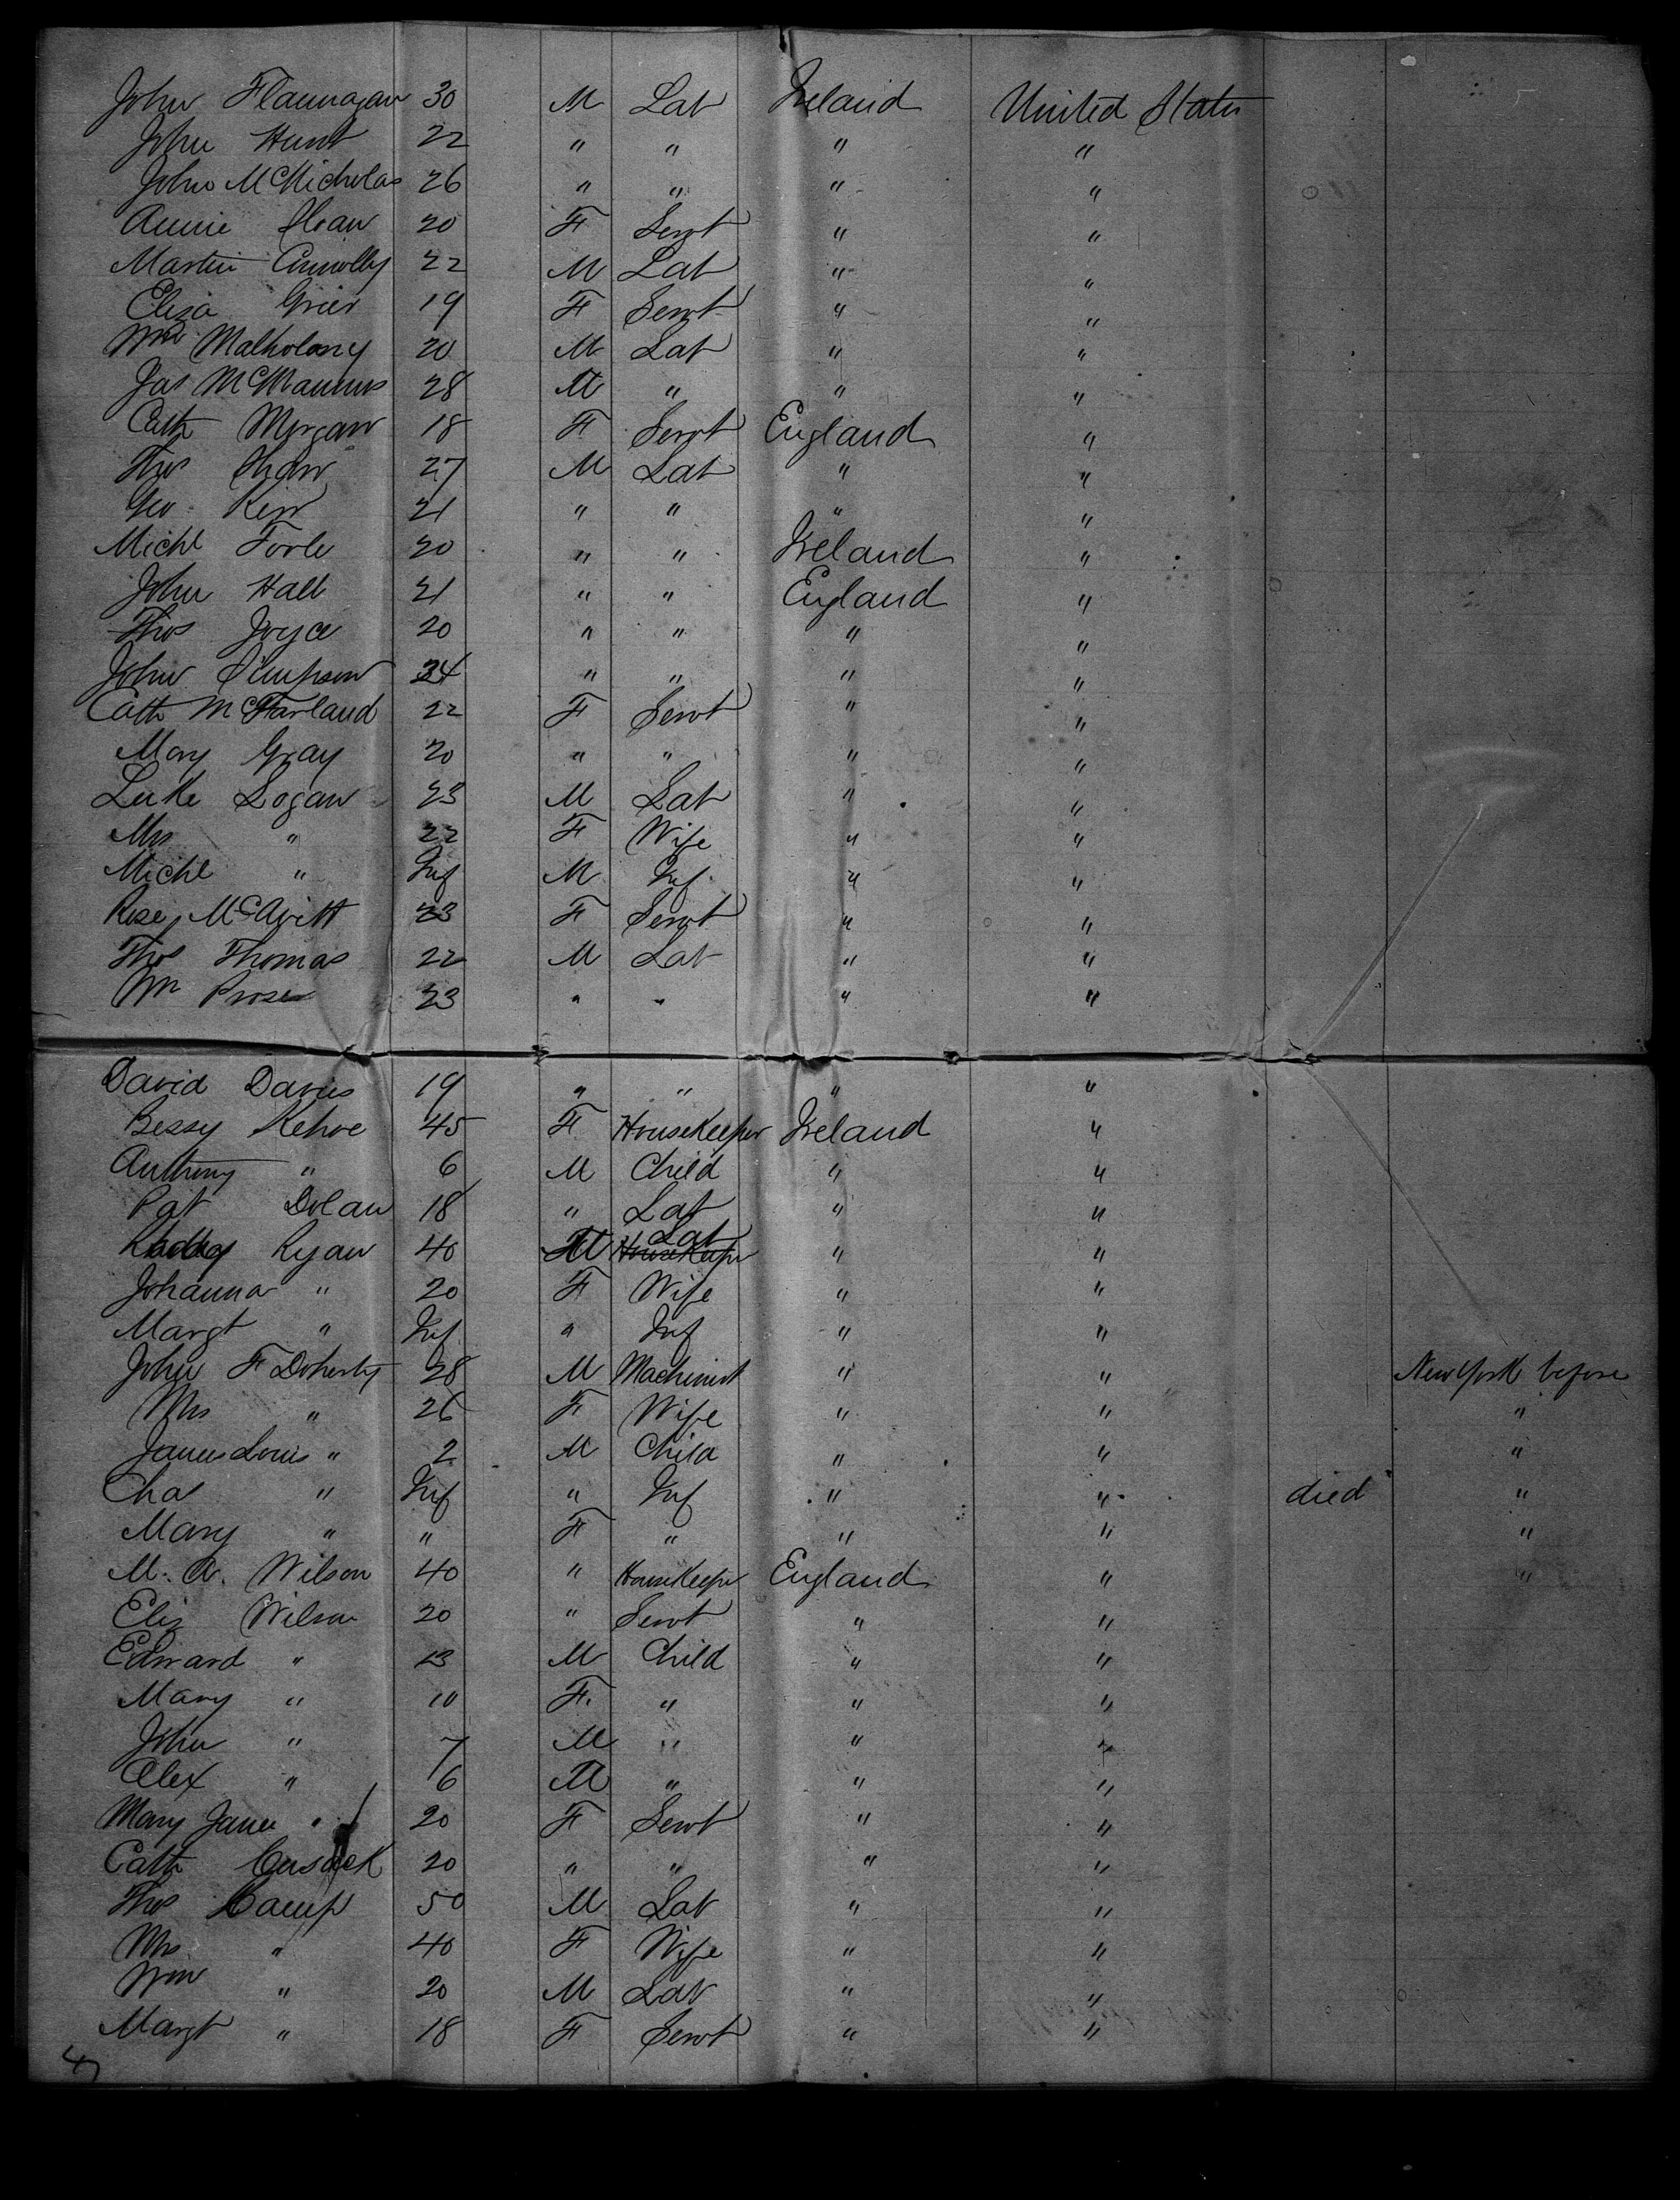 John Flannagan 30 M Lab Ireland United States
John Hunt 22 " " " "
John McNicholas 26 " " " "
Annie Sloan 20 F Servt " "
Martin Connolly 22 M Lab " "
Eliza Grier 19 F Servt " "
Wm Malholany 20 M Lab " "
Jas McManus 28 M " " "
Cath Morgan 18 F Servt England "
Thos Shaw 27 M Lab " "
Geo Kerr 21 " " " "
Michl Forle 20 " " Ireland "
John Hall 21 " " England "
Thos Joyce 20 " " " "
John Simpson 24 " " " "
Cath McFarland 22 F Servt " "
Mary Gray 20 " " " "
Luke Logan 23 M Lab " "
Mrs " 22 F Wife " "
Michl " Inf M Inf " "
Rose McAvitt 23 F Servt " "
Thos Thomas 22 M Lab " "
Wm Prosser 23 " " " "
David Davies 19 " " " "
Bessy Kehoe 45 F Housekeeper Ireland "
Anthony " 6 M Child " "
Pat Dolan 18 " Lab " "
Ryan 40 M Lab Housekeeper " "
Johanna " 20 F Wife " "
Margt " Inf " Inf " "
John F Doherty 28 M Machinist " " New York before
Mrs " 26 F Wife " " "
James Louis " 2 M Child " " "
Chas " Inf " Inf " " died "
Mary " " F " " " "
M. A. Wilson 40 " Housekeeper England " "
Eliz Wilson 20 " Servt " "
Edward " 13 M Child " "
Mary " 10 F. " " "
John " 7 M " " "
Alex " 6 M " " "
Mary Jane " 20 F Servt " "
Cath Cusack 20 " " " "
Thos Camp 50 M Lab " "
Mrs " 40 F Wife " "
Wm " 20 M Lab " "
Margt " 18 F Servt " "
47